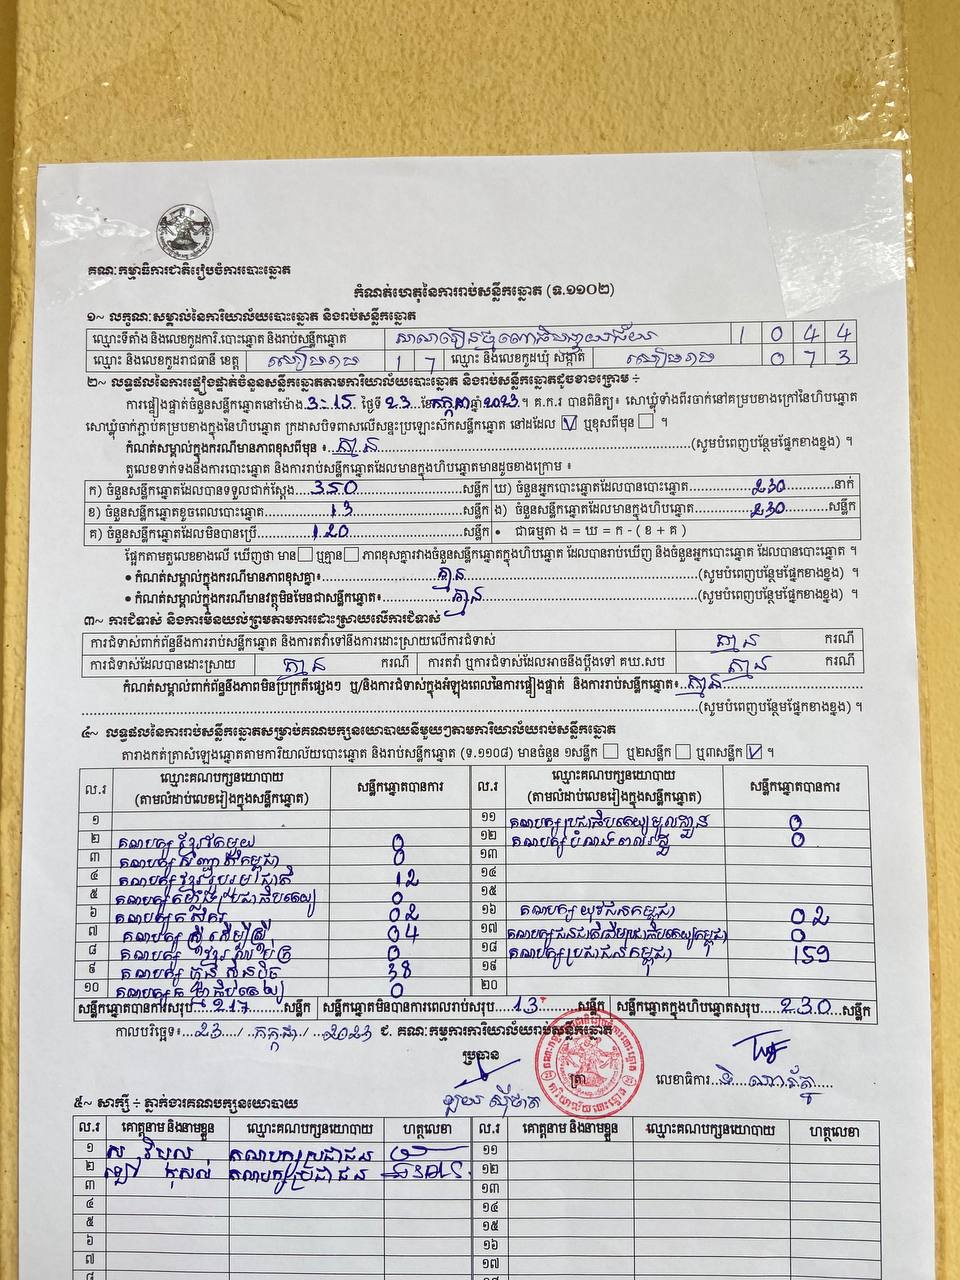 គណៈកម្មាធិការជាតិរៀបចំការបោះឆ្នោត
កំណត់ហេតុនៃការរាប់សន្លឹកឆ្នោត (ទ.១១០២)
១~ លក្ខណៈសម្គាល់នៃការិយាល័យបោះឆ្នោត និងរាប់សន្លឹកឆ្នោត
ឈ្មោះទីតាំង និងលេខកូដការិ.បោះឆ្នោត និងរាប់សន្លឹកឆ្នោត 1 0 4 4
ឈ្មោះ និងលេខកូដរាជធានី ខេត្ត សៀមរាប 1 7 ឈ្មោះ និងលេខកូដឃុំ សង្កាត់ សៀមរាប 0 7 3
២~ លទ្ធផលនៃការផ្ទៀងផ្ទាត់ចំនួនសន្លឹកឆ្នោតតាមការិយាល័យបោះឆ្នោត និងរាប់សន្លឹកឆ្នោតដូចខាងក្រោម ÷
ការផ្ទៀងផ្ទាត់ចំនួនសន្លឹកឆ្នោតនៅម៉ោង 3-15 ថ្ងៃទី 23 ខែ កក្កដា ឆ្នាំ 2023 ។ គ.ក.រ បានពិនិត្យ៖ សោឃ្លុំទាំងពីរចាក់នៅគម្របខាងក្រៅនៃហិបឆ្នោត
សោឃ្លុំចាក់ភ្ជាប់គម្របខាងក្នុងនៃហិបឆ្នោត ក្រដាសបិទពាសលើសន្ទះប្រឡោះស៊កសន្លឹកឆ្នោត នៅដដែល ☑ ឬខុសពីមុន ☐ ។
កំណត់សម្គាល់ក្នុងករណីមានភាពខុសពីមុន ៖ គ្មាន (សូមបំពេញបន្ថែមផ្នែកខាងខ្នង) ។
តួលេខទាក់ទងនឹងការបោះឆ្នោត និងការរាប់សន្លឹកឆ្នោតដែលមានក្នុងហិបឆ្នោតមានដូចខាងក្រោម ៖
ក) ចំនួនសន្លឹកឆ្នោតដែលបានទទួលជាក់ស្តែង 350 សន្លឹក ឃ) ចំនួនអ្នកបោះឆ្នោតដែលបានបោះឆ្នោត 230 នាក់
ខ) ចំនួនសន្លឹកឆ្នោតខូចពេលបោះឆ្នោត សន្លឹក ង) ចំនួនសន្លឹកឆ្នោតដែលមានក្នុងហិបឆ្នោត 230 សន្លឹក
គ) ចំនួនសន្លឹកឆ្នោតដែលមិនបានប្រើ 120 សន្លឹក • ជាធម្មតា ង = ឃ = ក - ( ខ + គ )
ផ្អែកតាមតួលេខខាងលើ ឃើញថា មាន ☐ ឬគ្មាន ☐ ភាពខុសគ្នារវាងចំនួនសន្លឹកឆ្នោតក្នុងហិបឆ្នោត ដែលបានរាប់ឃើញ និងចំនួនអ្នកបោះឆ្នោត ដែលបានបោះឆ្នោត ។
• កំណត់សម្គាល់ក្នុងករណីមានភាពខុសគ្នា៖ គ្មាន (សូមបំពេញបន្ថែមផ្នែកខាងខ្នង) ។
• កំណត់សម្គាល់ក្នុងករណីមានវត្ថុមិនមែនជាសន្លឹកឆ្នោត៖ គ្មាន (សូមបំពេញបន្ថែមផ្នែកខាងខ្នង) ។
៣~ ការជំទាស់ និងការមិនយល់ព្រមតាមការដោះស្រាយលើការជំទាស់
ការជំទាស់ពាក់ព័ន្ធនឹងការរាប់សន្លឹកឆ្នោត និងការតវ៉ាទៅនឹងការដោះស្រាយលើការជំទាស់ គ្មាន ករណី
ការជំទាស់ដែលបានដោះស្រាយ គ្មាន ករណី ការតវ៉ា ឬការជំទាស់ដែលអាចនឹងប្តឹងទៅ គឃ.សប គ្មាន ករណី
កំណត់សម្គាល់ពាក់ព័ន្ធនឹងភាពមិនប្រក្រតីផ្សេងៗ ឬ/និងការជំទាស់ក្នុងអំឡុងពេលនៃការផ្ទៀងផ្ទាត់ និងការរាប់សន្លឹកឆ្នោត៖ គ្មាន
(សូមបំពេញបន្ថែមផ្នែកខាងខ្នង) ។
៤~ លទ្ធផលនៃការរាប់សន្លឹកឆ្នោតសម្រាប់គណបក្សនយោបាយនីមួយៗតាមការិយាល័យរាប់សន្លឹកឆ្នោត
តារាងកត់ត្រាសំឡេងឆ្នោតតាមការិយាល័យបោះឆ្នោត និងរាប់សន្លឹកឆ្នោត (ទ.១១០៨) មានចំនួន ១សន្លឹក ☐ ឬ២សន្លឹក ☐ ឬ៣សន្លឹក ☑ ។
ល.រ ឈ្មោះគណបក្សនយោបាយ (តាមលំដាប់លេខរៀងក្នុងសន្លឹកឆ្នោត) សន្លឹកឆ្នោតបានការ ល.រ ឈ្មោះគណបក្សនយោបាយ (តាមលំដាប់លេខរៀងក្នុងសន្លឹកឆ្នោត) សន្លឹកឆ្នោតបានការ
១ ១១ គណបក្សប្រជាធិបតេយ្យមូលដ្ឋាន 0
២ គណបក្ស ខ្មែរតែមួយ 0 ១២ គណបក្ស 0
៣ គណបក្ស 0 ១៣
៤ គណបក្ស 12 ១៤
៥ គណបក្ស 0 ១៥
៦ គណបក្ស កសិករ 02 ១៦ គណបក្ស យុវជនកម្ពុជា 02
៧ គណបក្ស ស្ត្រីដើម្បីស្ត្រី 04 ១៧ គណបក្ស 0
៨ គណបក្ស 0 ១៨ គណបក្សប្រជាជនកម្ពុជា 159
៩ គណបក្ស ហ៊្វុនស៊ិនប៉ិច 38 ១៩
១០ គណបក្ស 0 ២០
សន្លឹកឆ្នោតបានការសរុប 217 សន្លឹក សន្លឹកឆ្នោតមិនបានការពេលរាប់សរុប 13 សន្លឹក សន្លឹកឆ្នោតក្នុងហិបឆ្នោតសរុប 230 សន្លឹក
កាលបរិច្ឆេទ៖ 23 / កក្កដា / 2023 ជ. គណៈកម្មការការិយាល័យរាប់សន្លឹកឆ្នោត
ប្រធាន
ត្រា
លេខាធិការ
៥~ សាក្សី ÷ ភ្នាក់ងារគណបក្សនយោបាយ
ល.រ គោត្តនាម និងនាមខ្លួន ឈ្មោះគណបក្សនយោបាយ ហត្ថលេខា ល.រ គោត្តនាម និងនាមខ្លួន ឈ្មោះគណបក្សនយោបាយ ហត្ថលេខា
១ ស វិបុល គណបក្សប្រជាជន ១១
២ កុសល់ គណបក្សប្រជាជន ១២
៣ ១៣
៤ ១៤
៥ ១៥
៦ ១៦
៧ ១៧
៨ ១៨